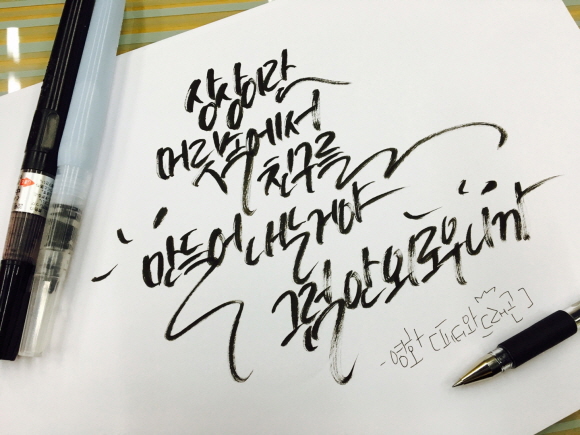 상상이란
머릿속에서
친구를
만들어 내는거야
그럼 안 외로우니까
- 영화 [피터와 드래곤]